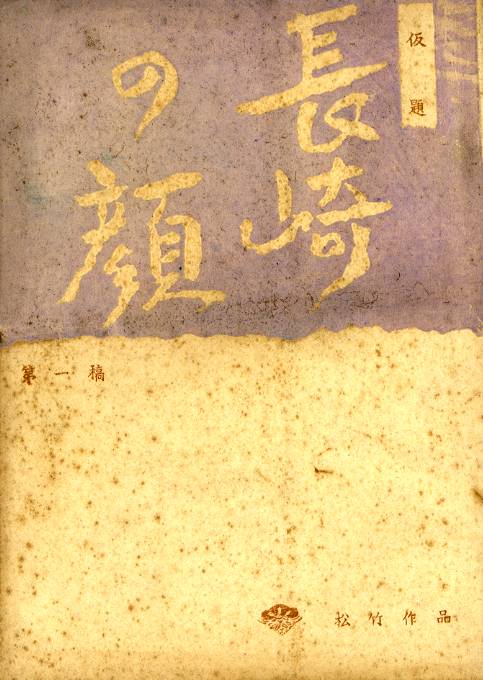 仮題
長崎
の顔
第一稿
松竹作品